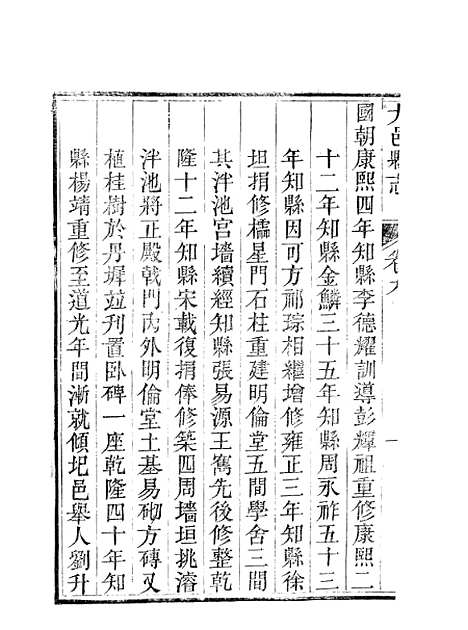 大邑縣志
卷九
一
國朝康熙四年知縣李德耀訓導彭耀祖重修康熙二
十二年知縣金鱗三十五年知縣周永祚五十三
年知縣因可方祁琮相繼增修雍正三年知縣徐
坦捐修櫺星門石柱重建明倫堂五間學舍三間
其泮池宮墻續經知縣張易源王寯先後修整乾
隆十二年知縣宋載復捐俸修築四周墻垣挑濬
泮池將正殿戟門丙外明倫堂土基易砌方磚又
植桂樹於丹墀並刋置臥碑一座乾隆四十年知
縣楊靖重修至道光年間漸就傾圯邑舉人劉升